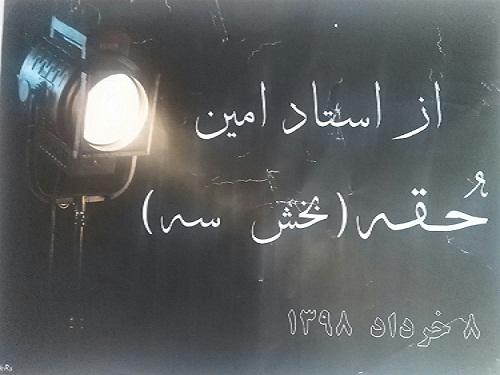 از استاد امین
حُقه (بخش سه)
۸ خرداد ۱۳۹۸